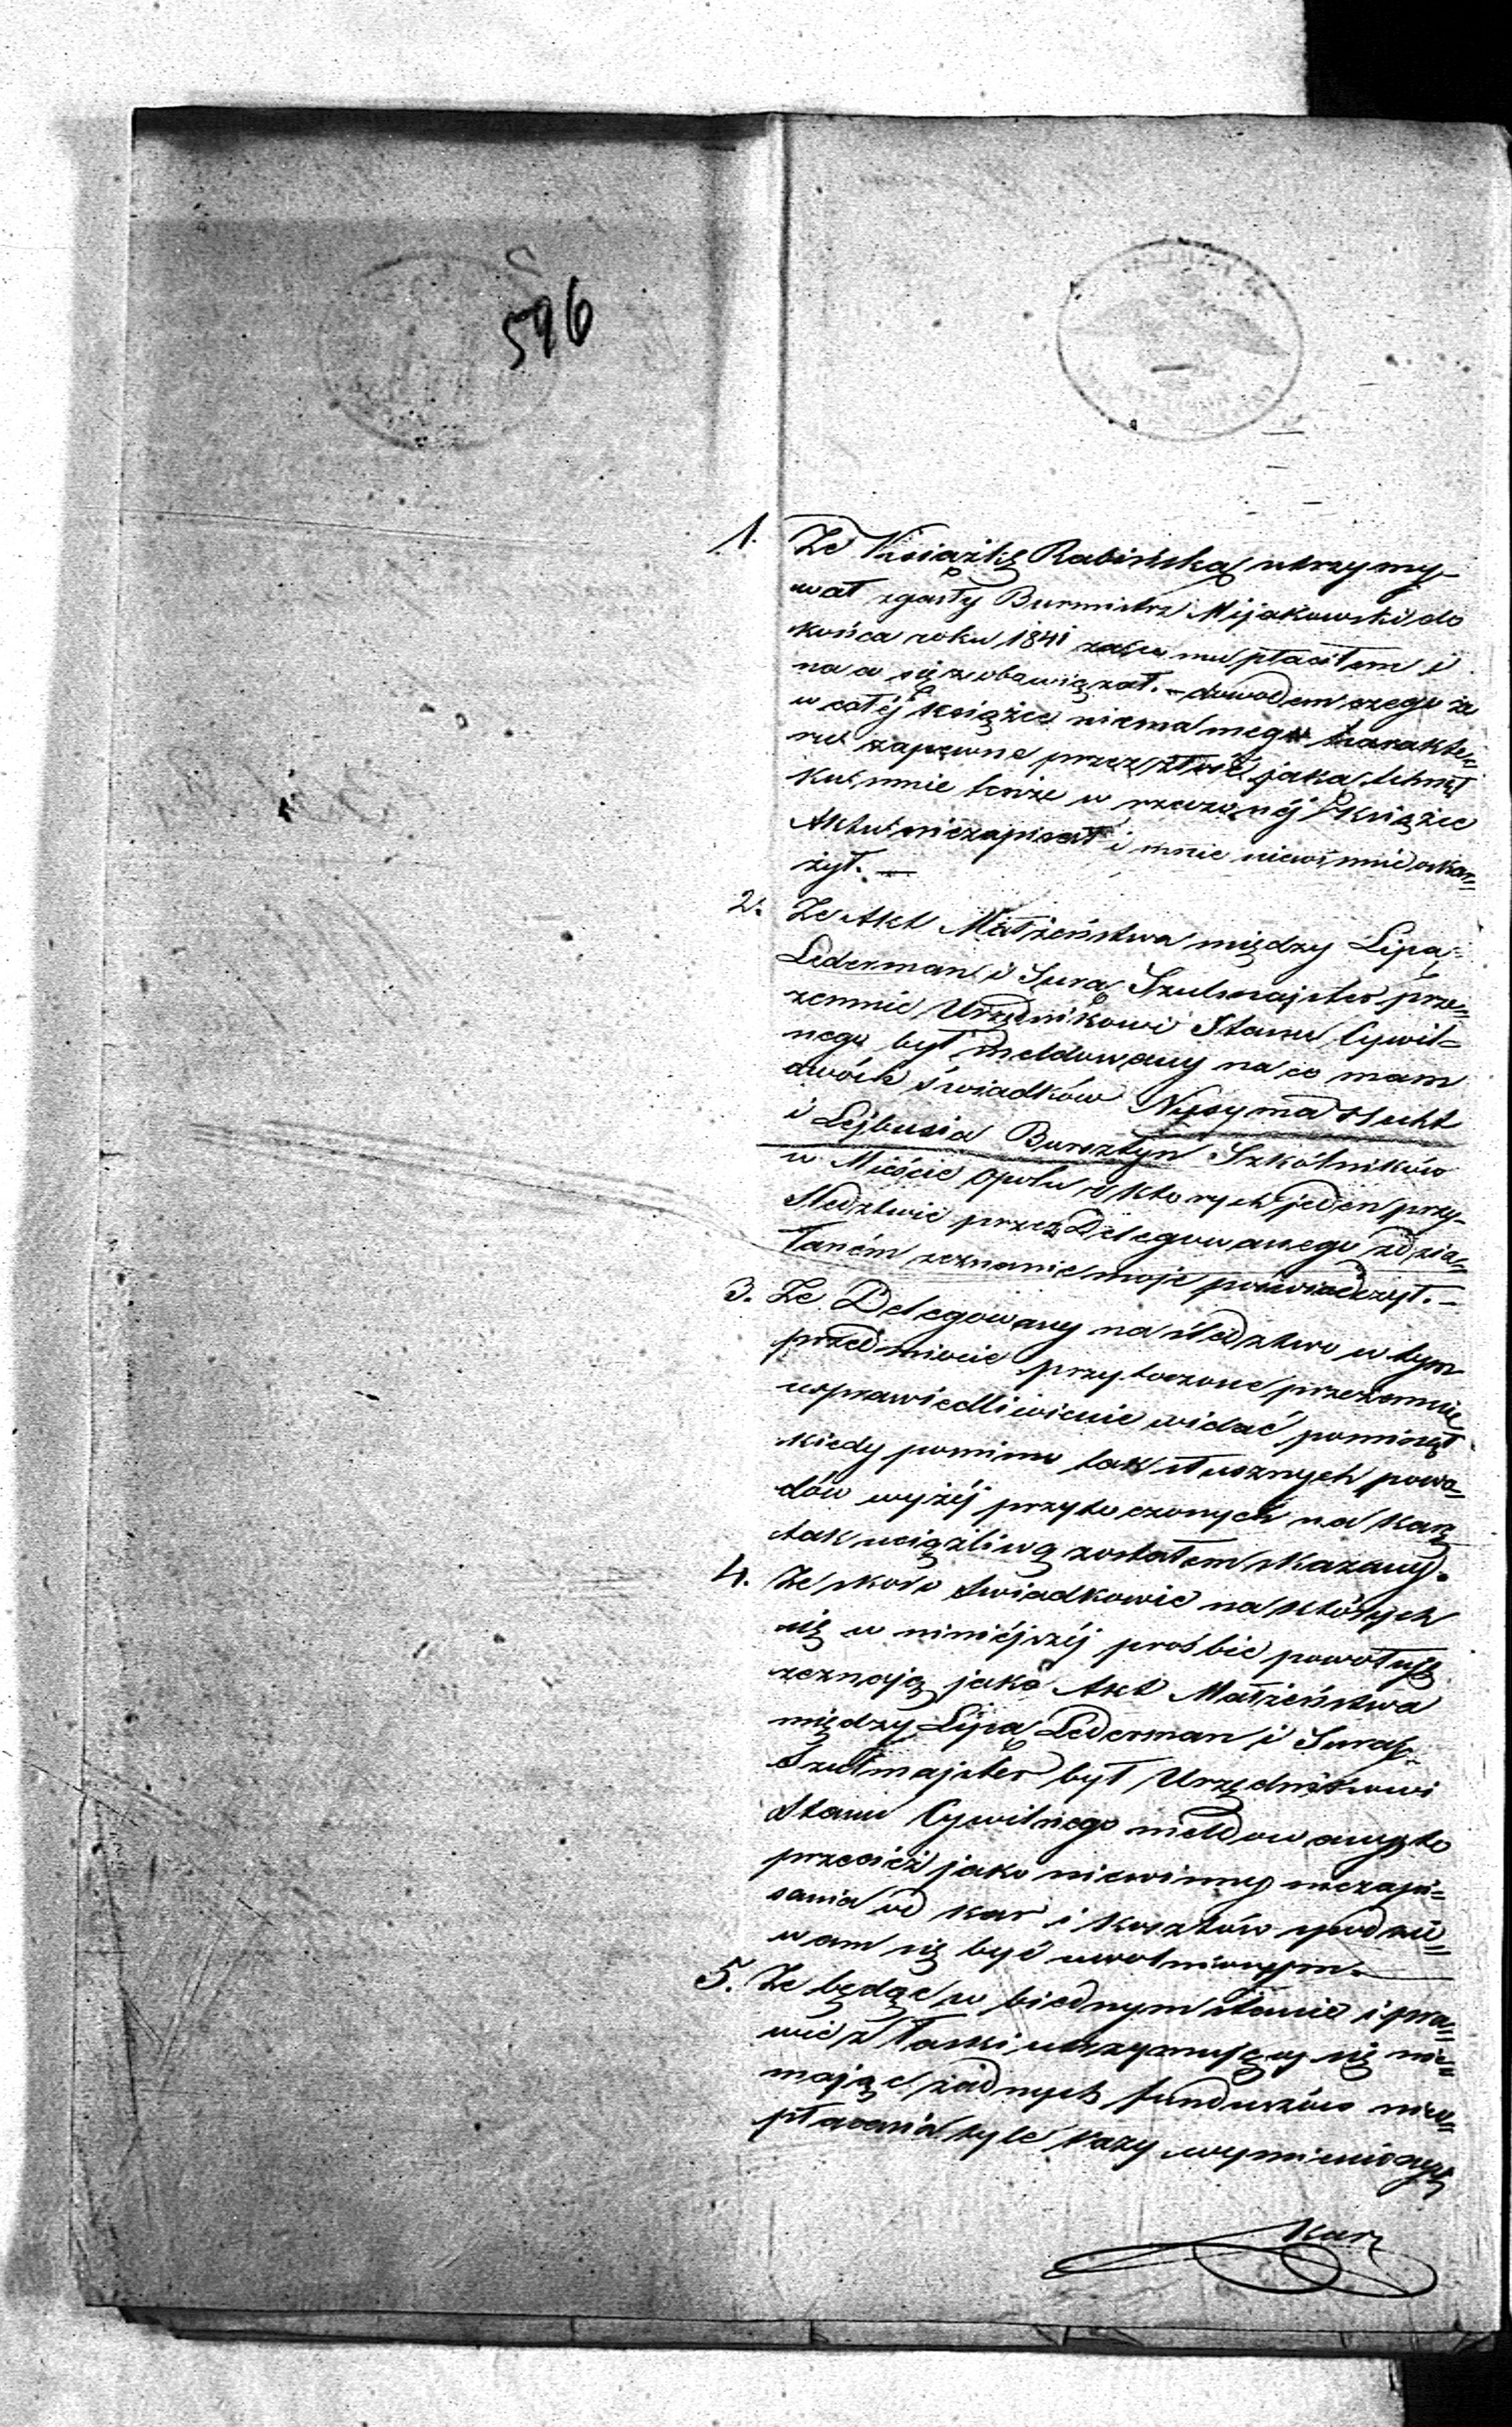 596
1. Że Książkę Rabińską utrzymy-
wał zgasły Burmistrz Mijakowski do
końca roku 1841 za co mu płaciłem i
na co się zobowiązał. – dowodem czego że
w całéj książce niema mego charakte-
ru zapewne przez złość jaką tchnął
ku mnie tenże w rzeczonéj książce
Aktu niezapisał i mnie niewinnie oskar=
żył. —
2. Że Akt Małżeństwa między Lipą
Lederman i Surą Szulmajster prze=
zemnie Urzędnikowi Stanu Cywil=
nego był meldowany na co mam
dwóch świadków Nusyma Hecht
i Lejbusia Bursztyn Szkólników
w Mieście Opolu z których jeden przy
śledztwie przez Delegowanego zdzia=
łaném zeznanie moje poświadczył. –
3. Że Delegowany na śledztwo w tym
przedmiocie przytoczone przezemnie
usprawiedliwienie widać pominął
kiedy pomimo tak słusznych powo=
dów wyżéj przytoczonych na karę
tak uciążliwą zostałem skazany.
4. Że skoro świadkowie na których
się w niniéjszéj prośbie powołuję
zeznają jako Akt Małżeństwa
między Lipą Lederman i Surą
Szulmajster był Urzędnikowi
Stanu Cywilnego meldowany to
przecież jako niewinny niezapi=
sania od kar i kosztów spodzie=
wam się być uwolnionym. —
5. Że będąc w biednym stanie i pra=
wie z łaski utrzymujący się nie=
mając żadnych funduszów
płacenia tyle razy wymienionej
Kary